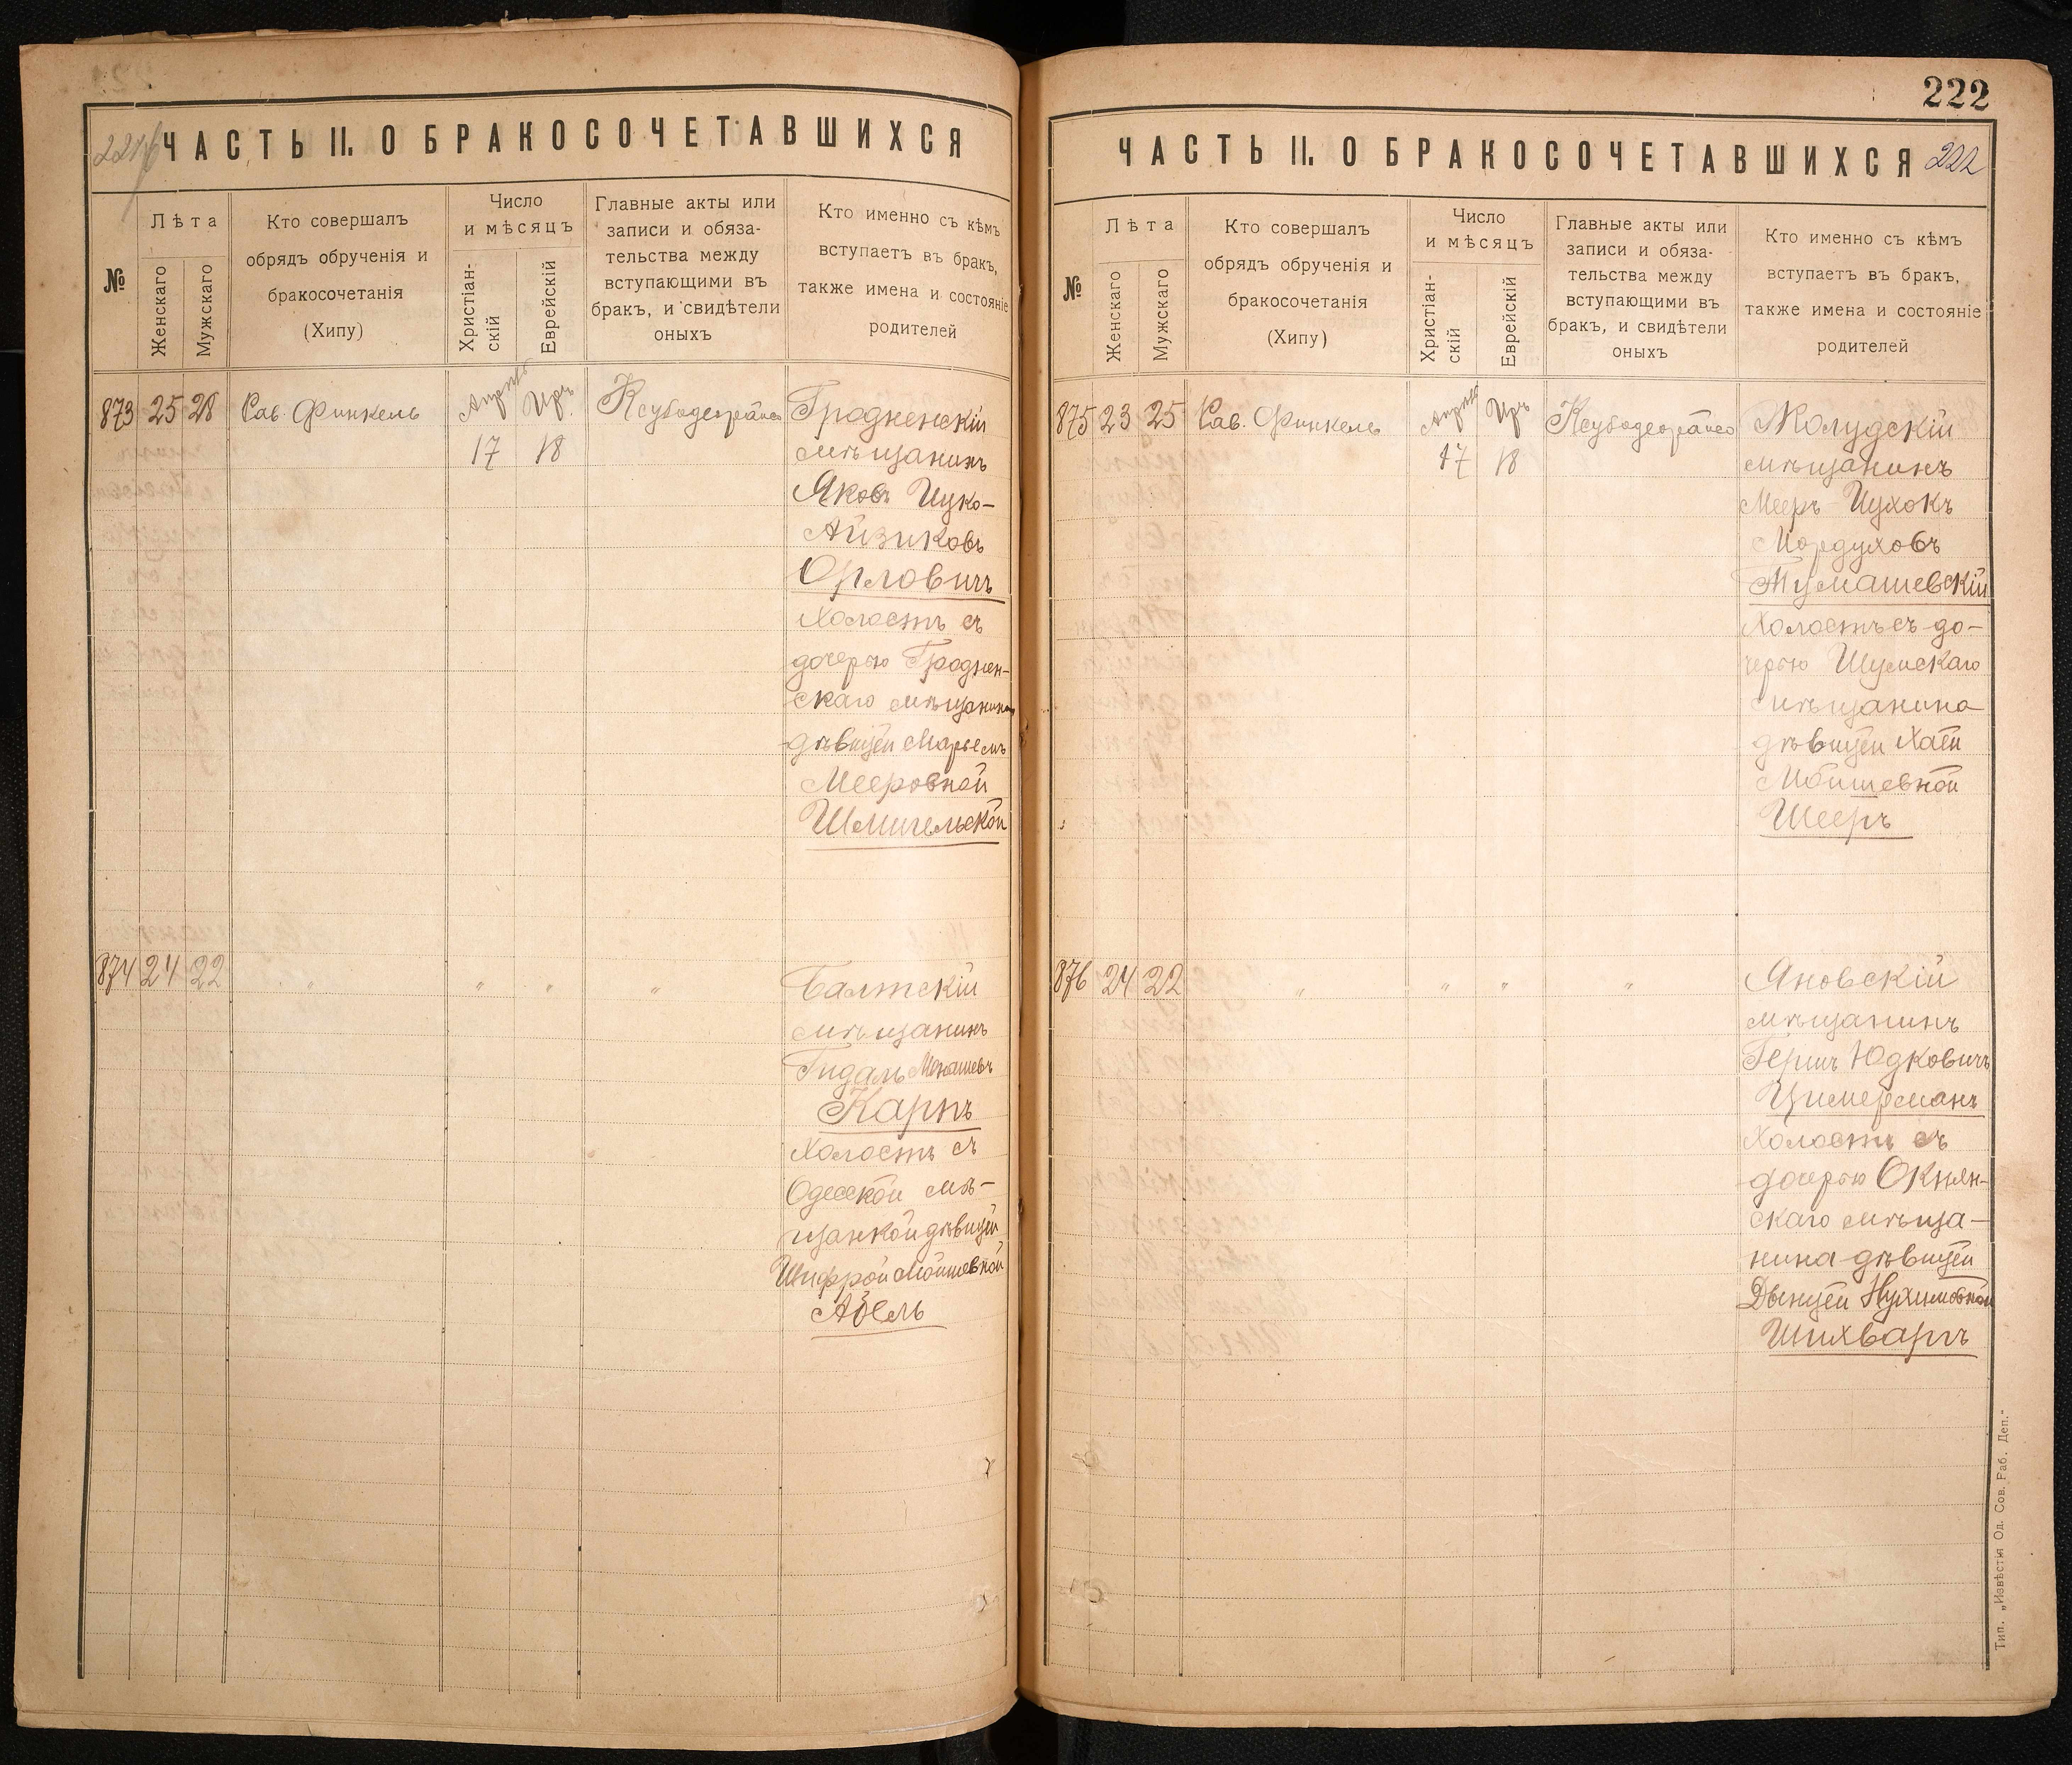 221 об
ЧАСТЬ II. О БРАКОСОЧЕТАВШИХСЯ
№
Лѣта
Женскаго
Мужскаго
Кто совершалъ
обрядъ обрученія и
бракосочетанія
(Хипу)
Число
и мѣсяцъ
Христіан-
скій
Еврейскій
Главные акты или
записи и обяза-
тельства между
вступающими въ
бракъ, и свидѣтели
оныхъ
Кто именно съ кѣмъ
вступаетъ въ бракъ,
также имена и состояніе
родителей
873 25 28 Рав. Финкель Апрель Иръ
17 18
Гродненскій
мѣщанинъ
Яковъ Ицко-
Айзиковъ
Орловичъ
Холостъ съ
дочерью Гроднен-
скаго мѣщанина
дѣвицей Марьемъ
Мееровной
Шмигельской
874 24 22 " " " "
Балтскій
мѣщанинъ
Гидаль Менашевъ
Карпъ
Холостъ съ
Одесской мѣ-
щанкой дѣвицей
Шифрой Мойшевной
Абель
222
ЧАСТЬ II. О БРАКОСОЧЕТАВШИХСЯ
222
№
Лѣта
Женскаго
Мужскаго
Кто совершалъ
обрядъ обрученія и
бракосочетанія
(Хипу)
Число
и мѣсяцъ
Христіан-
скій
Еврейскій
Главные акты или
записи и обяза-
тельства между
вступающими въ
бракъ, и свидѣтели
оныхъ
Кто именно съ кѣмъ
вступаетъ въ бракъ,
также имена и состояніе
родителей
875 23 25 Рав. Финкель Апрель Иръ
17 18
Жолудскій
мѣщанинъ
Мееръ Ицхокъ
Мордуховъ
Тумашевскій
Холостъ съ до-
черью Шумскаго
мѣщанина
дѣвицей Хаей
Мойшевной
Шееръ
876 24 22 " " " "
Яновскій
мѣщанинъ
Гершъ Юдковичъ
Цимерманъ
Холостъ съ
дочерью Окнян-
скаго мѣща-
нина дѣвицей
Двыцей Нухимовной
Шихварпъ
Тип. „Извѣстія Од. Сов. Раб. Деп.“